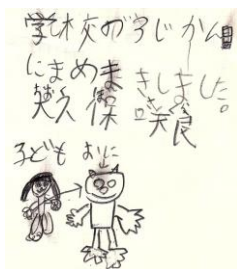 学校の3じかん目
にまめまきしました。
保 咲良
子ども おに